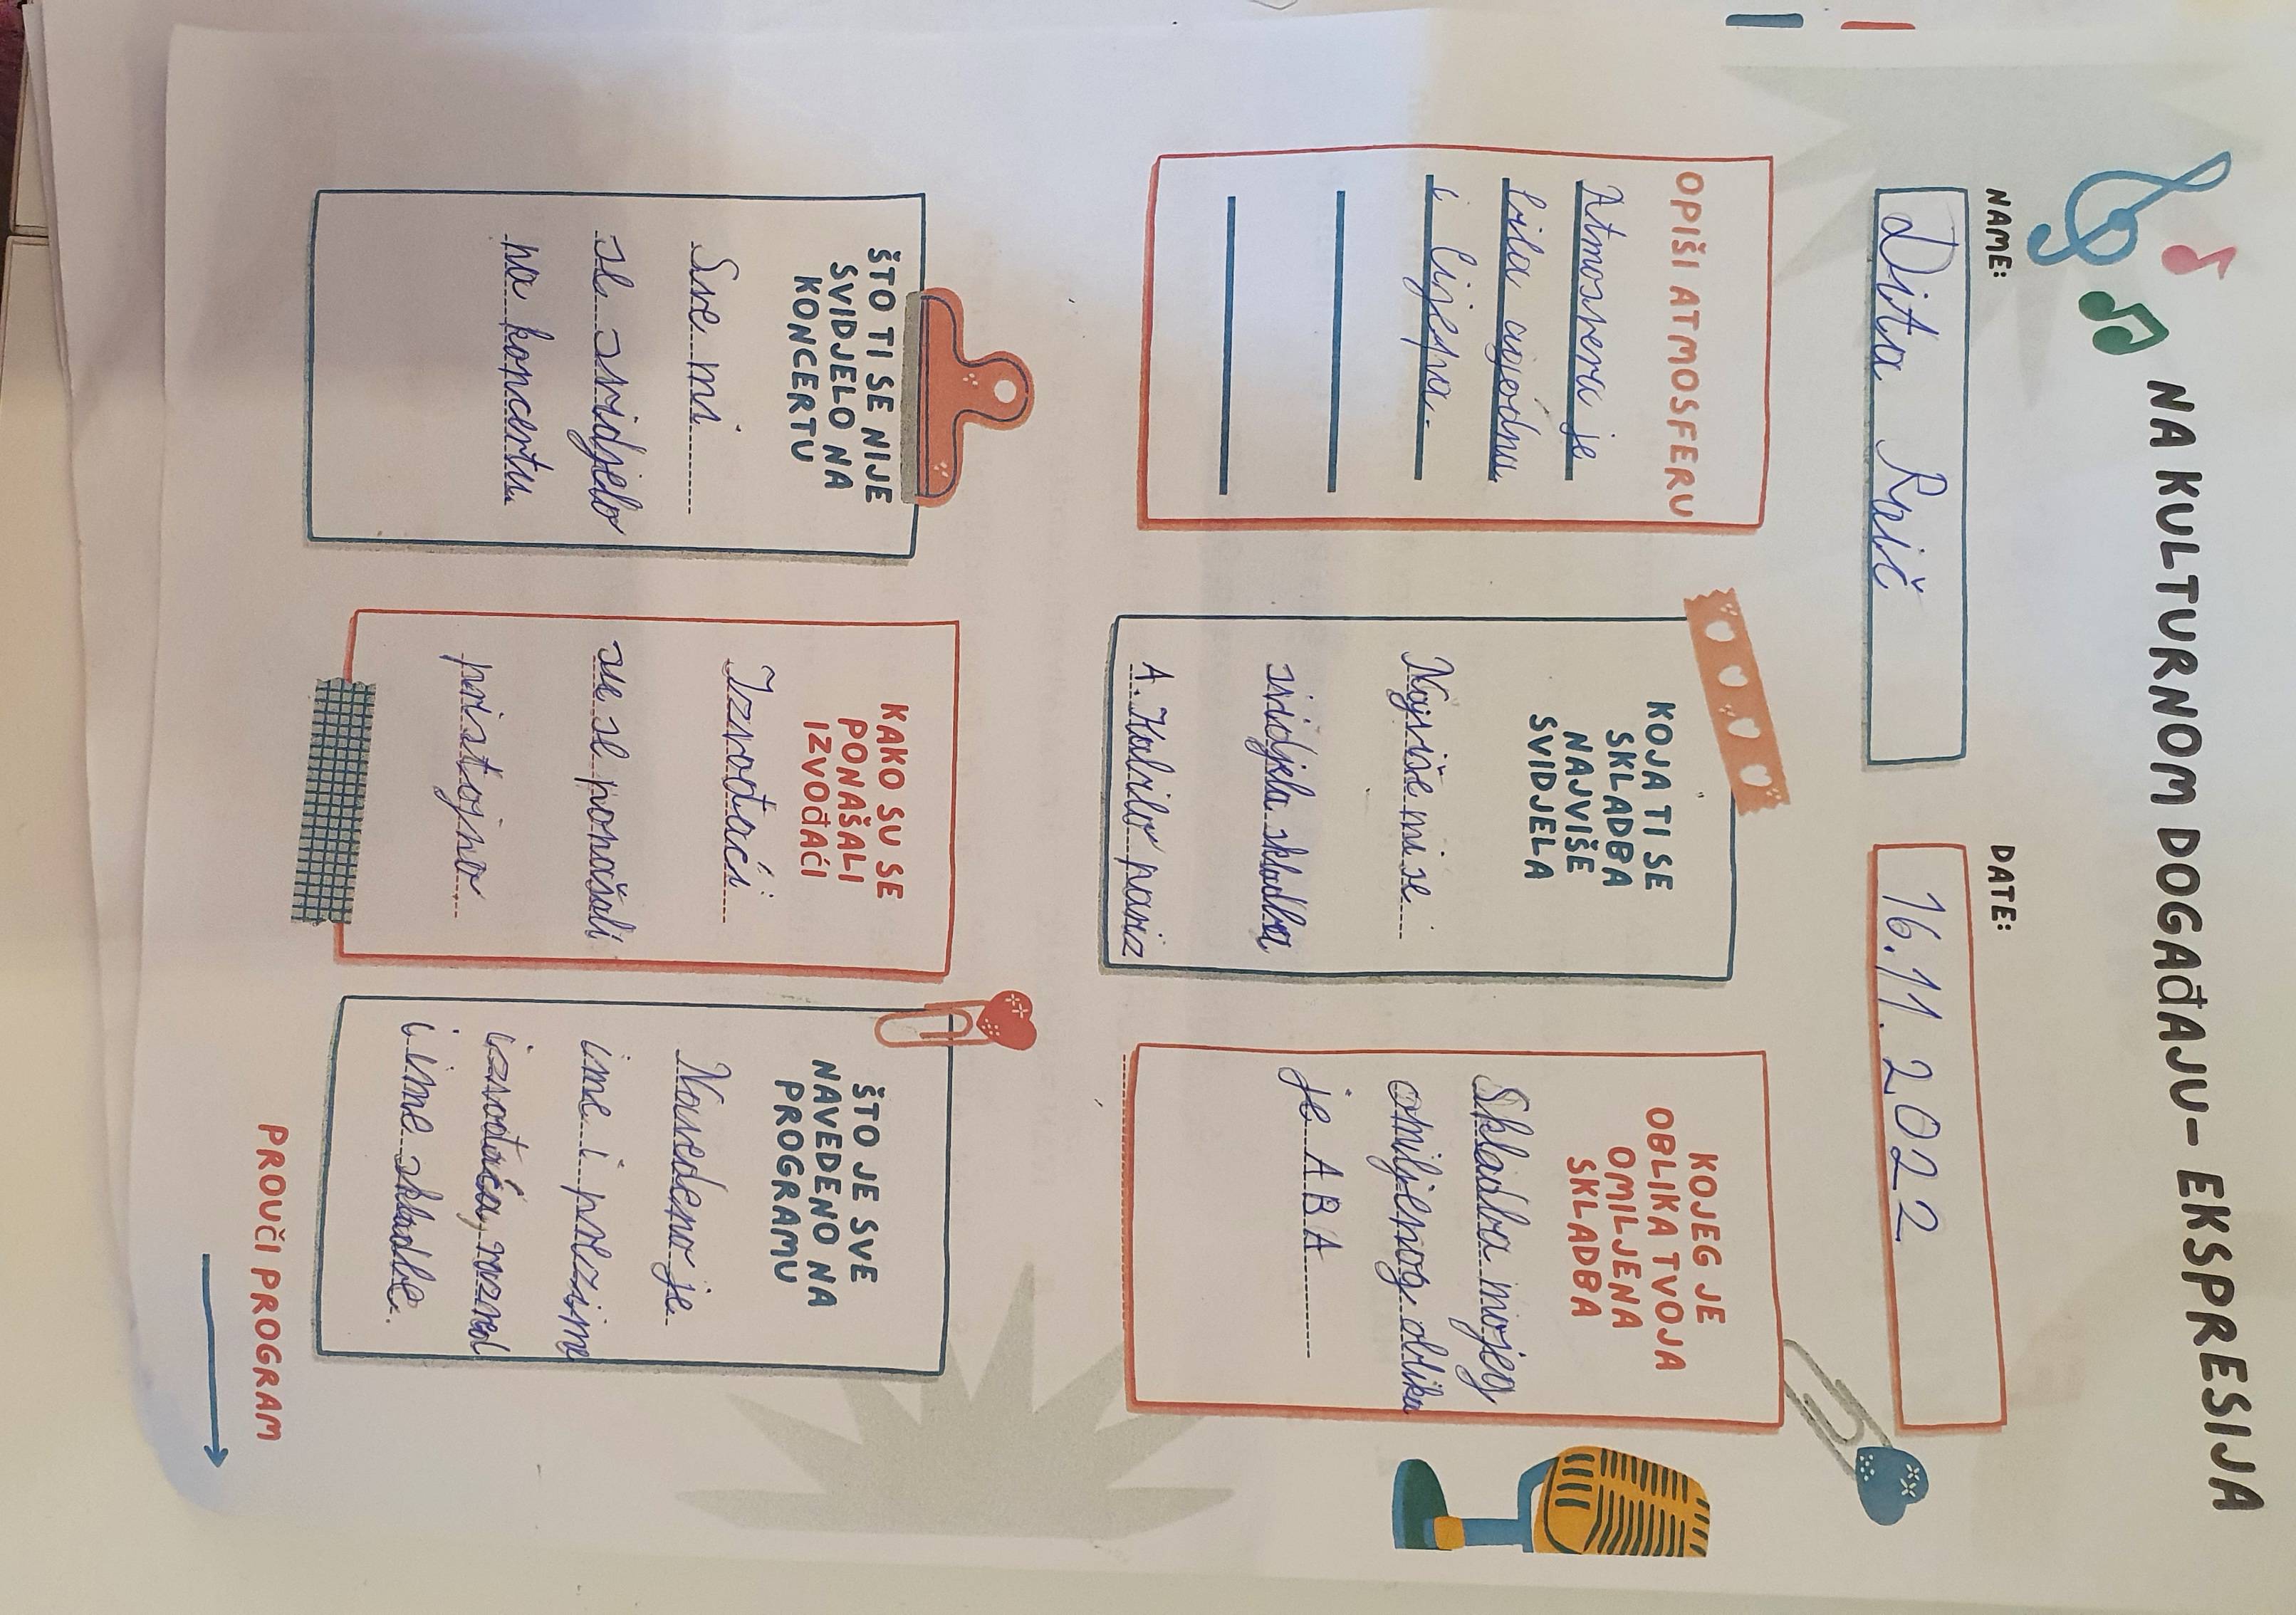 NA KULTURNOM DOGAĐAJU- EKSPRESIJA
NAME:
Dita
DATE:
16.11.2022
OPIŠI ATMOSFERU
Atmosvera je
bila ugodna
i lijepa.
KOJA TI SE
SKLADBA
NAJVIŠE
SVIDJELA
Najviše mi se
svidjela skladba
A. Kabiljo
KOJEG JE
OBLIKA TVOJA
OMILJENA
SKLADBA
Skladba mojeg
omiljenog oblika
je ABA
ŠTO TI SE NIJE
SVIDJELO NA
KONCERTU
Sve mi
se svidjelo
na koncertu
KAKO SU SE
PONAŠALI
IZVOĐAĆI
Izvođaći
su se ponašali
pristojno
ŠTO JE SVE
NAVEDENO NA
PROGRAMU
Navedeno je
ime i prezime
izvođaća, razred
i ime skladbe.
PROUČI PROGRAM